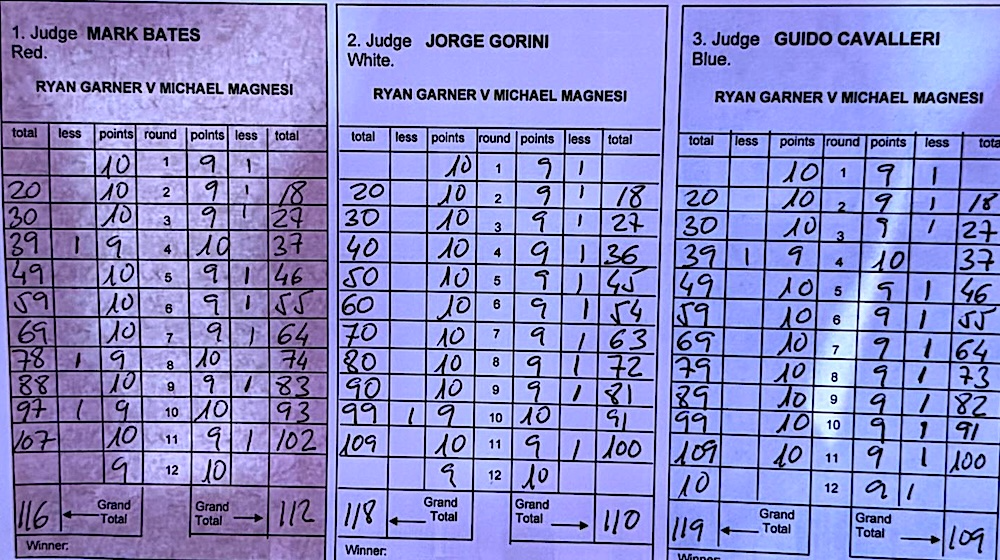 1. Judge MARK BATES
Red.
RYAN GARNER V MICHAEL MAGNESI
total less points round points less total
10 1 9 1
20 10 2 9 1 18
30 10 3 9 1 27
39 1 9 4 10 37
49 10 5 9 1 46
59 10 6 9 1 55
69 10 7 9 1 64
78 1 9 8 10 74
88 10 9 9 1 83
97 1 9 10 10 93
107 10 11 9 1 102
9 12 10
116 Grand Total Grand Total 112
Winner:
2. Judge JORGE GORINI
White.
RYAN GARNER V MICHAEL MAGNESI
total less points round points less total
10 1 9 1
20 10 2 9 1 18
30 10 3 9 1 27
40 10 4 9 1 36
50 10 5 9 1 45
60 10 6 9 1 54
70 10 7 9 1 63
80 10 8 9 1 72
90 10 9 9 1 81
99 1 9 10 10 91
109 10 11 9 1 100
9 12 10
118 Grand Total Grand Total 110
Winner:
3. Judge GUIDO CAVALLERI
Blue.
RYAN GARNER V MICHAEL MAGNESI
total less points round points less tota
10 1 9 1
20 10 2 9 1 18
30 10 3 9 1 27
39 1 9 4 10 37
49 10 5 9 1 46
59 10 6 9 1 55
69 10 7 9 1 64
79 10 8 9 1 73
89 10 9 9 1 82
99 10 10 9 1 91
109 10 11 9 1 100
10 12 9 1
119 Grand Total Grand Total 109
Winner: